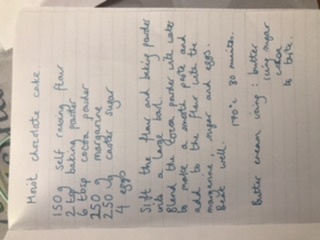 Moist chocolate cake.
150g self raising flour
2 tsp baking powder
6 tbsp cocoa powder
250 g margarine
250 g caster sugar
4 eggs
Sift the flour and baking powder
into a large bowl.
Blend the cocoa powder with water
to make a smooth paste and
add to the flour with the
margarine sugar and eggs.
Beat well.
170°c 30 minutes.
Butter cream icing: butter
icing sugar
cocoa
to taste.